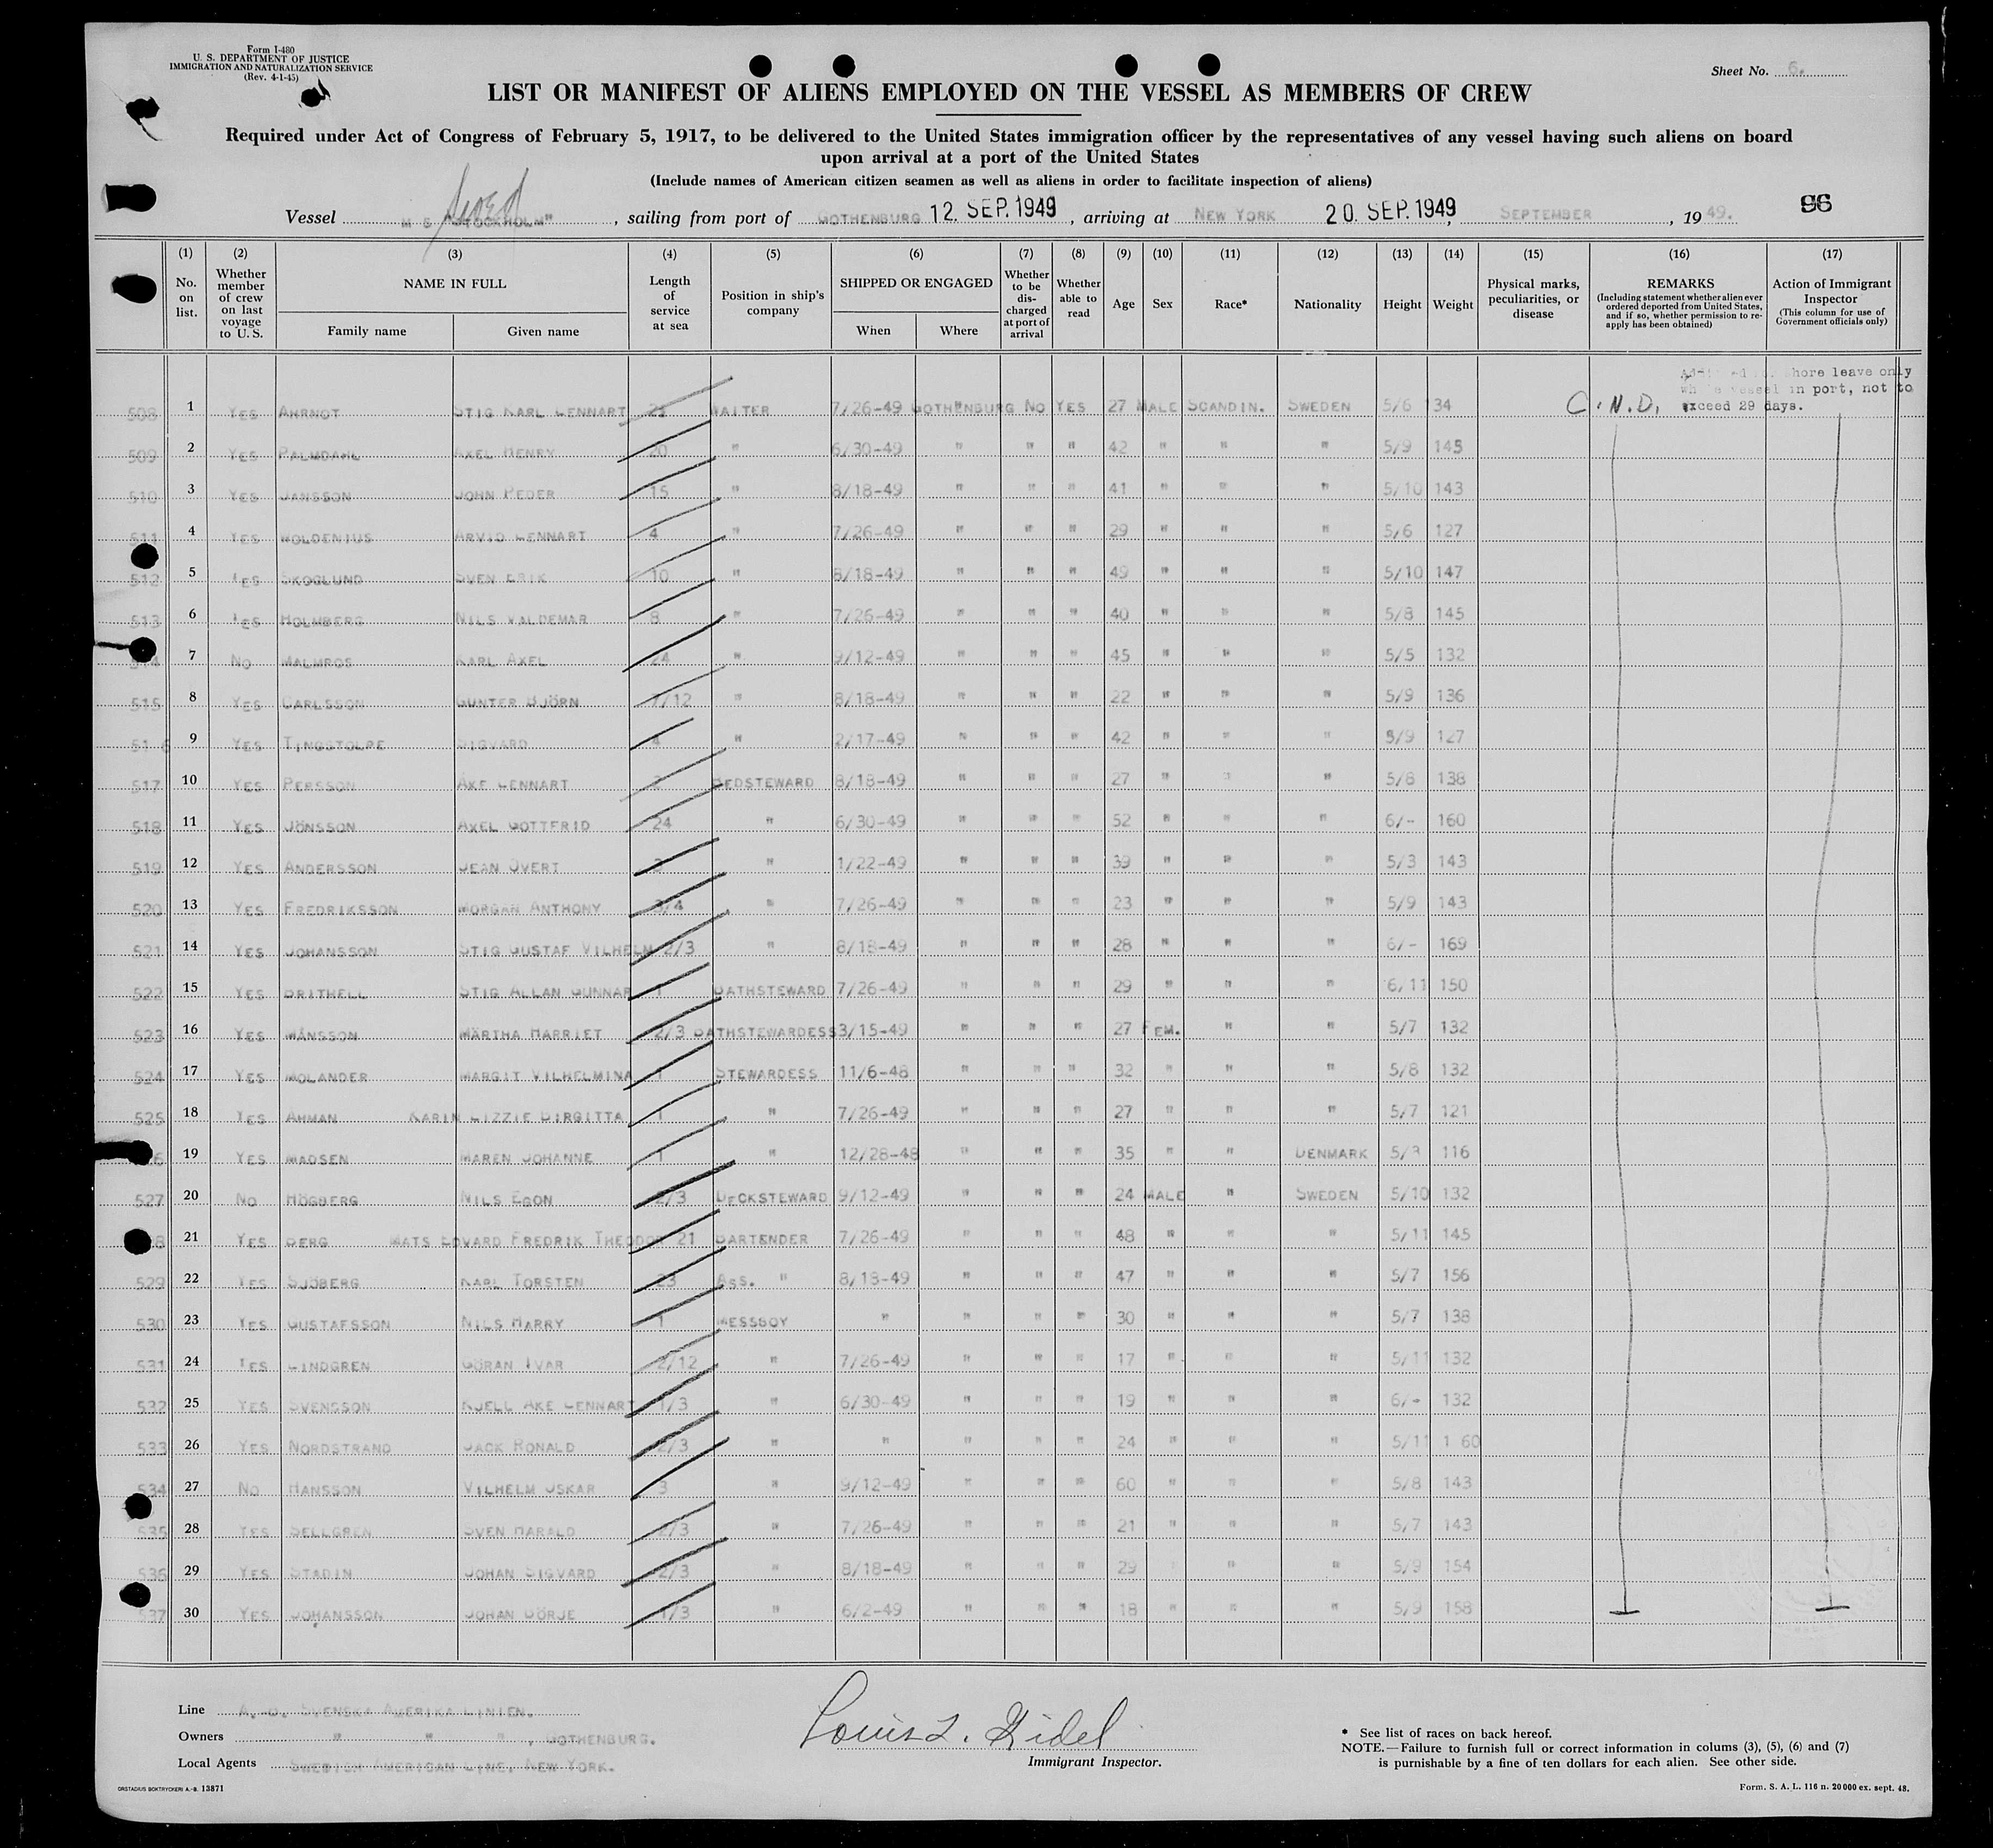 Form I-480
U. S. DEPARTMENT OF JUSTICE
IMMIGRATION AND NATURALIZATION SERVICE
(Rev. 4-1-45)
Sheet No. 6.
LIST OR MANIFEST OF ALIENS EMPLOYED ON THE VESSEL AS MEMBERS OF CREW
Required under Act of Congress of February 5, 1917, to be delivered to the United States immigration officer by the representatives of any vessel having such aliens on board
upon arrival at a port of the United States
(Include names of American citizen seamen as well as aliens in order to facilitate inspection of aliens)
96
Vessel M S "STOCKHOLM", sailing from port of GOTHENBURG 12. SEP. 1949, arriving at NEW YORK 20. SEP. 1949, SEPTEMBER, 1949.
(1) (2) (3) (4) (5) (6) (7) (8) (9) (10) (11) (12) (13) (14) (15) (16) (17)
No. on list.
Whether member of crew on last voyage to U. S.
NAME IN FULL
Family name Given name
Length of service at sea
Position in ship's company
SHIPPED OR ENGAGED
When Where
Whether to be discharged at port of arrival
Whether able to read
Age Sex Race* Nationality Height Weight
Physical marks, peculiarities, or disease
REMARKS
(Including statement whether alien ever ordered deported from United States, and if so, whether permission to reapply has been obtained)
Action of Immigrant Inspector
(This column for use of Government officials only)
shore leave only
vessel in port, not to
exceed 29 days.
508 1 YES AHRNOT STIG KARL LENNART 21 WAITER 7/26-49 GOTHENBURG NO YES 27 MALE SCANDIN. SWEDEN 5/6 134 C.N.D.
509 2 YES PALMDAHL AXEL HENRY 20 " 6/30-49 " " " 42 " " " 5/9 145
510 3 YES JANSSON JOHN PEDER 15 " 8/18-49 " " " 41 " " " 5/10 143
511 4 YES HOLDENIUS ARVID LENNART 4 " 7/26-49 " " " 29 " " " 5/6 127
512 5 YES SKOGLUND SVEN ERIK 10 " 8/18-49 " " " 49 " " " 5/10 147
513 6 YES HOLMBERG NILS VALDEMAR 8 " 7/26-49 " " " 40 " " " 5/8 145
514 7 NO MALMROS KARL AXEL 24 " 9/12-49 " " " 45 " " " 5/5 132
515 8 YES CARLSSON GUNTER BJÖRN 7/12 " 8/18-49 " " " 22 " " " 5/9 136
516 9 YES TINGSTOLPE SIGVARD 4 " 2/17-49 " " " 42 " " " 5/9 127
517 10 YES PERSSON AXE LENNART 2 BEDSTEWARD 8/18-49 " " " 27 " " " 5/8 138
518 11 YES JÖNSSON AXEL GOTTFRID 24 " 6/30-49 " " " 52 " " " 6/- 160
519 12 YES ANDERSSON JEAN OVERT 3 " 1/22-49 " " " 39 " " " 5/3 143
520 13 YES FREDRIKSSON MORGAN ANTHONY 3/4 " 7/26-49 " " " 23 " " " 5/9 143
521 14 YES JOHANSSON STIG GUSTAF VILHELM 2/3 " 8/18-49 " " " 28 " " " 6/- 169
522 15 YES BRITHELL STIG ALLAN GUNNAR 1 BATHSTEWARD 7/26-49 " " " 29 " " " 6/11 150
523 16 YES MÅNSSON MÄRTHA HARRIET 2/3 BATHSTEWARDESS 3/15-49 " " " 27 FEM. " " 5/7 132
524 17 YES MOLANDER MARGIT VILHELMINA 1 STEWARDESS 11/6-48 " " " 32 " " " 5/8 132
525 18 YES AHMAN KARIN LIZZIE BIRGITTA 1 " 7/26-49 " " " 27 " " " 5/7 121
526 19 YES MADSEN MAREN JOHANNE 1 " 12/28-48 " " " 35 " " DENMARK 5/3 116
527 20 NO HÖGBERG NILS EGON 2/3 DECKSTEWARD 9/12-49 " " " 24 MALE " SWEDEN 5/10 132
528 21 YES BERG MATS EDVARD FREDRIK THEODOR 21 BARTENDER 7/26-49 " " " 48 " " " 5/11 145
529 22 YES SJÖBERG KARL TORSTEN 23 ASS. " 8/18-49 " " " 47 " " " 5/7 156
530 23 YES GUSTAFSSON NILS HARRY 1 MESSBOY " " " " 30 " " " 5/7 138
531 24 YES LINDGREN GÖRAN IVAR 2/12 " 7/26-49 " " " 17 " " " 5/11 132
532 25 YES SVENSSON KJELL AKE LENNART 1/3 " 6/30-49 " " " 19 " " " 6/- 132
533 26 YES NORDSTRAND JACK RONALD 2/3 " " " " " 24 " " " 5/11 1 60
534 27 NO HANSSON VILHELM OSKAR 3 " 9/12-49 " " " 60 " " " 5/8 143
535 28 YES SELLGREN SVEN HARALD 2/3 " 7/26-49 " " " 21 " " " 5/7 143
536 29 YES STADIN JOHAN SIGVARD 2/3 " 8/18-49 " " " 29 " " 5/9 154
537 30 YES JOHANSSON JOHAN BÖRJE 1/3 " 6/2-49 " " " 18 " " " 5/9 158
Line A.-B. SVENSKA AMERIKA LINIEN.
Owners " " ", GOTHENBURG.
Local Agents SWEDISH AMERICAN LINE, NEW YORK.
Louis L. Nidel
Immigrant Inspector.
* See list of races on back hereof.
NOTE.—Failure to furnish full or correct information in colums (3), (5), (6) and (7)
is punishable by a fine of ten dollars for each alien. See other side.
ORSTADIUS BOKTRYCKERI A.-B. 13871
Form. S. A. L. 116 n. 20 000 ex. sept. 48.